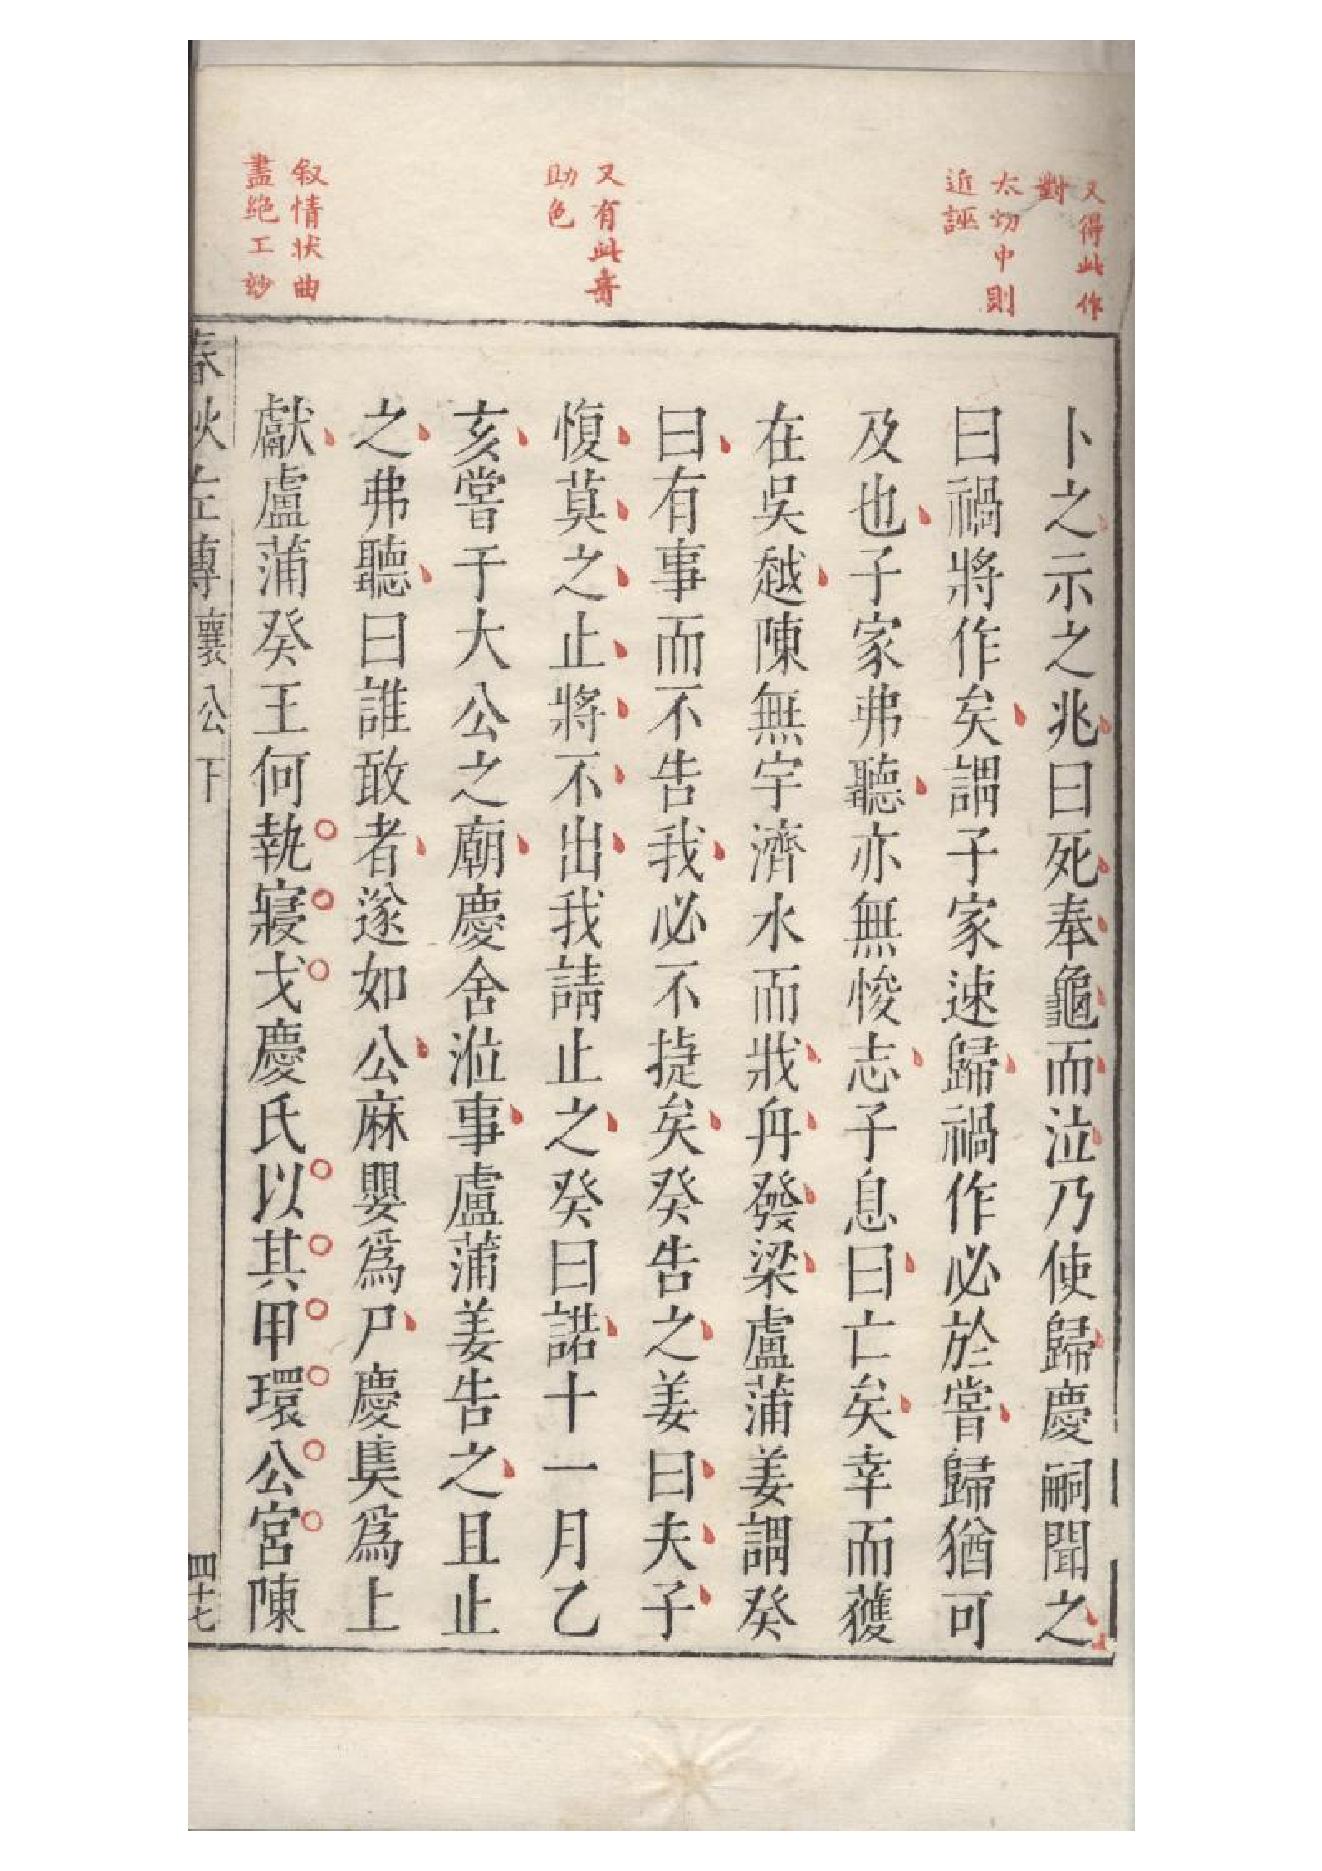 又得此作
對
太切中則
近誣
又有此奇
助色
叙情狀曲
盡絶工妙
卜之示之兆曰死奉龜而泣乃使歸慶嗣聞之
曰禍將作矣謂子家速歸禍作必於嘗歸猶可
及也子家弗聽亦無悛志子息曰亡矣幸而獲
在吳越陳無宇濟水而戕舟發梁盧蒲姜謂癸
曰有事而不告我必不捷矣癸告之姜曰夫子
愎莫之止將不出我請止之癸曰諾十一月乙
亥嘗于大公之廟慶舍涖事盧蒲姜告之且止
之弗聽曰誰敢者遂如公麻嬰爲尸慶奊爲上
獻盧蒲癸王何執寢戈慶氏以其甲環公宮陳
春秋左傳襄公下
四十七